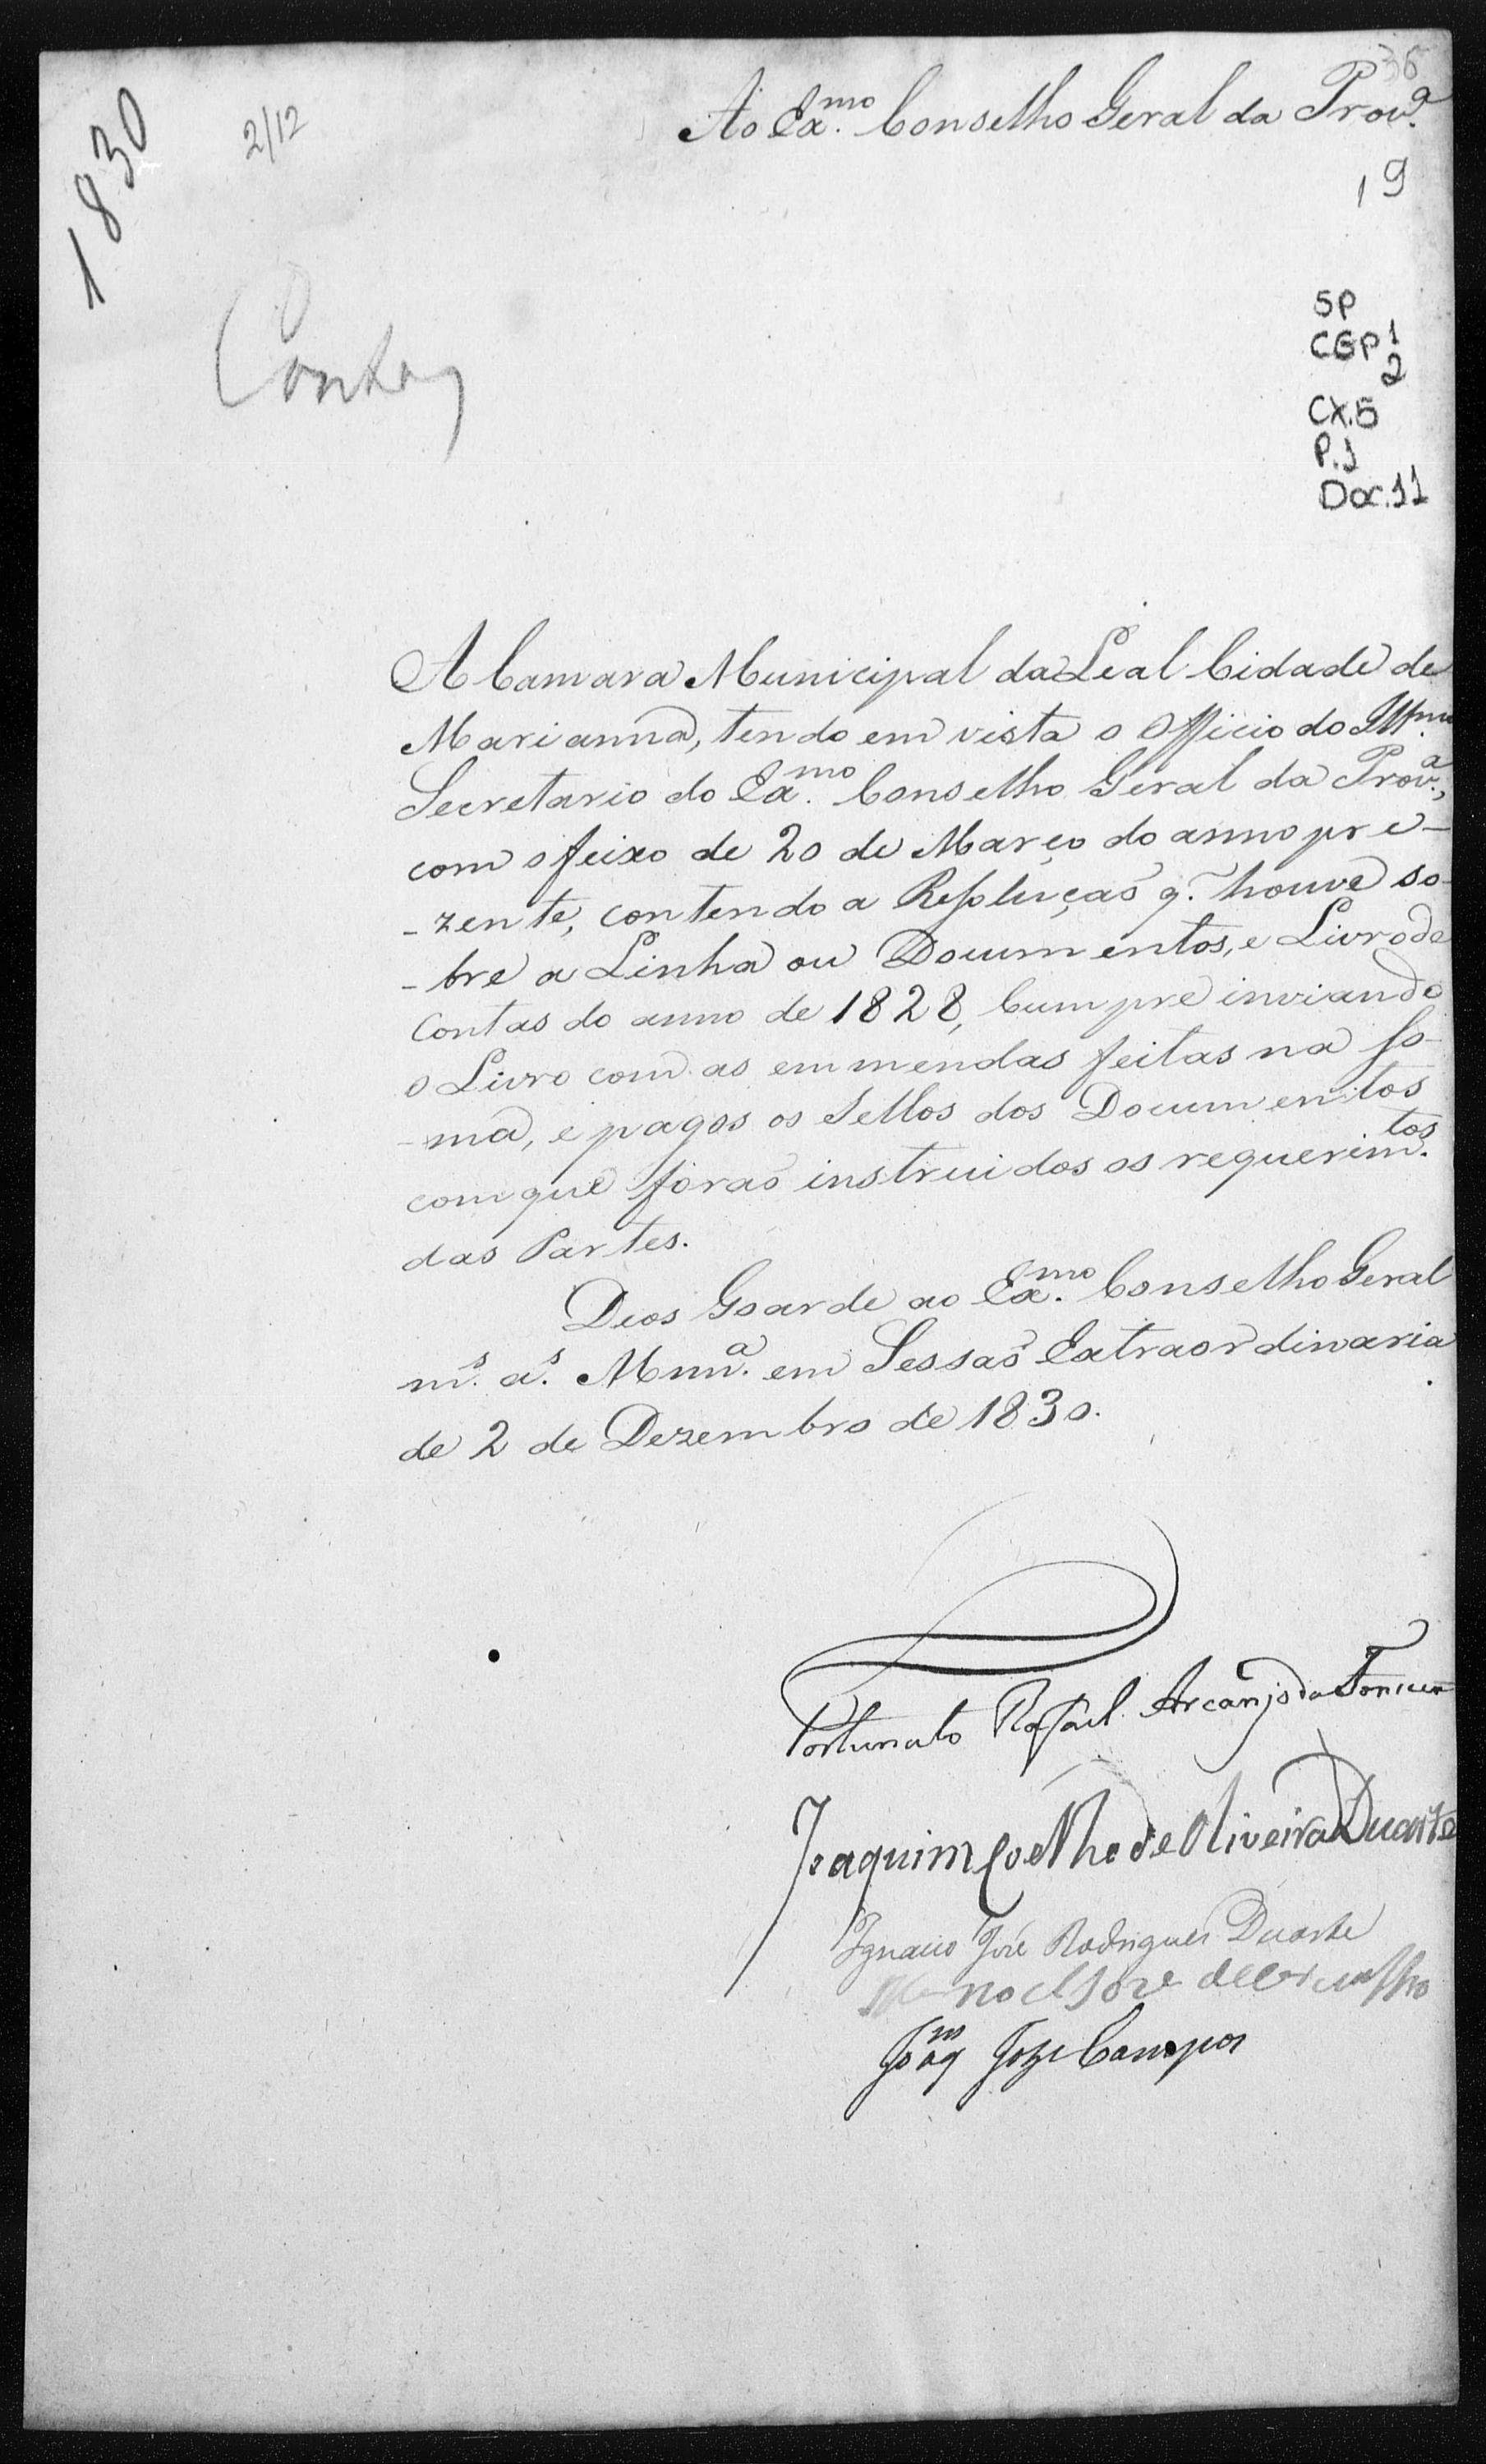 36
Ao Ex.mo Conselho Geral da Prov.a
19
1830
2/12
Contas
SP
CGP 1
2
CX.5
P.1
Doc.11
A Camara Municipal da Leal Cidade de
Marianna, tendo em vista o Officio do Ill.mo
Secretario do Ex.mo Conselho Geral da Prov.a,
com o feixo de 20 de Março do anno pre-
-zente, contendo a Resoluçaõ q. houve so-
-bre a Linha ou Documentos, e Livro de
Contas do anno de 1828, Cumpre inviando
o Livro com as emmendas feitas na so-
-ma, e pagos os Sellos dos Documentos
com que foraõ instruidos os requerim.tos
das Partes.
Deos Goarde ao Ex.mo Conselho Geral
m.s a.s Mnn.a em Sessaõ Extraordinaria
de 2 de Dezembro de 1830.
Fortunato Rafael Arcanjo da Fonceca
Joaquim Coelho de Oliveira Duarte
Ignacio José Rodrigues Duarte
Manoel Joze de
Joaq.m Joze Campos